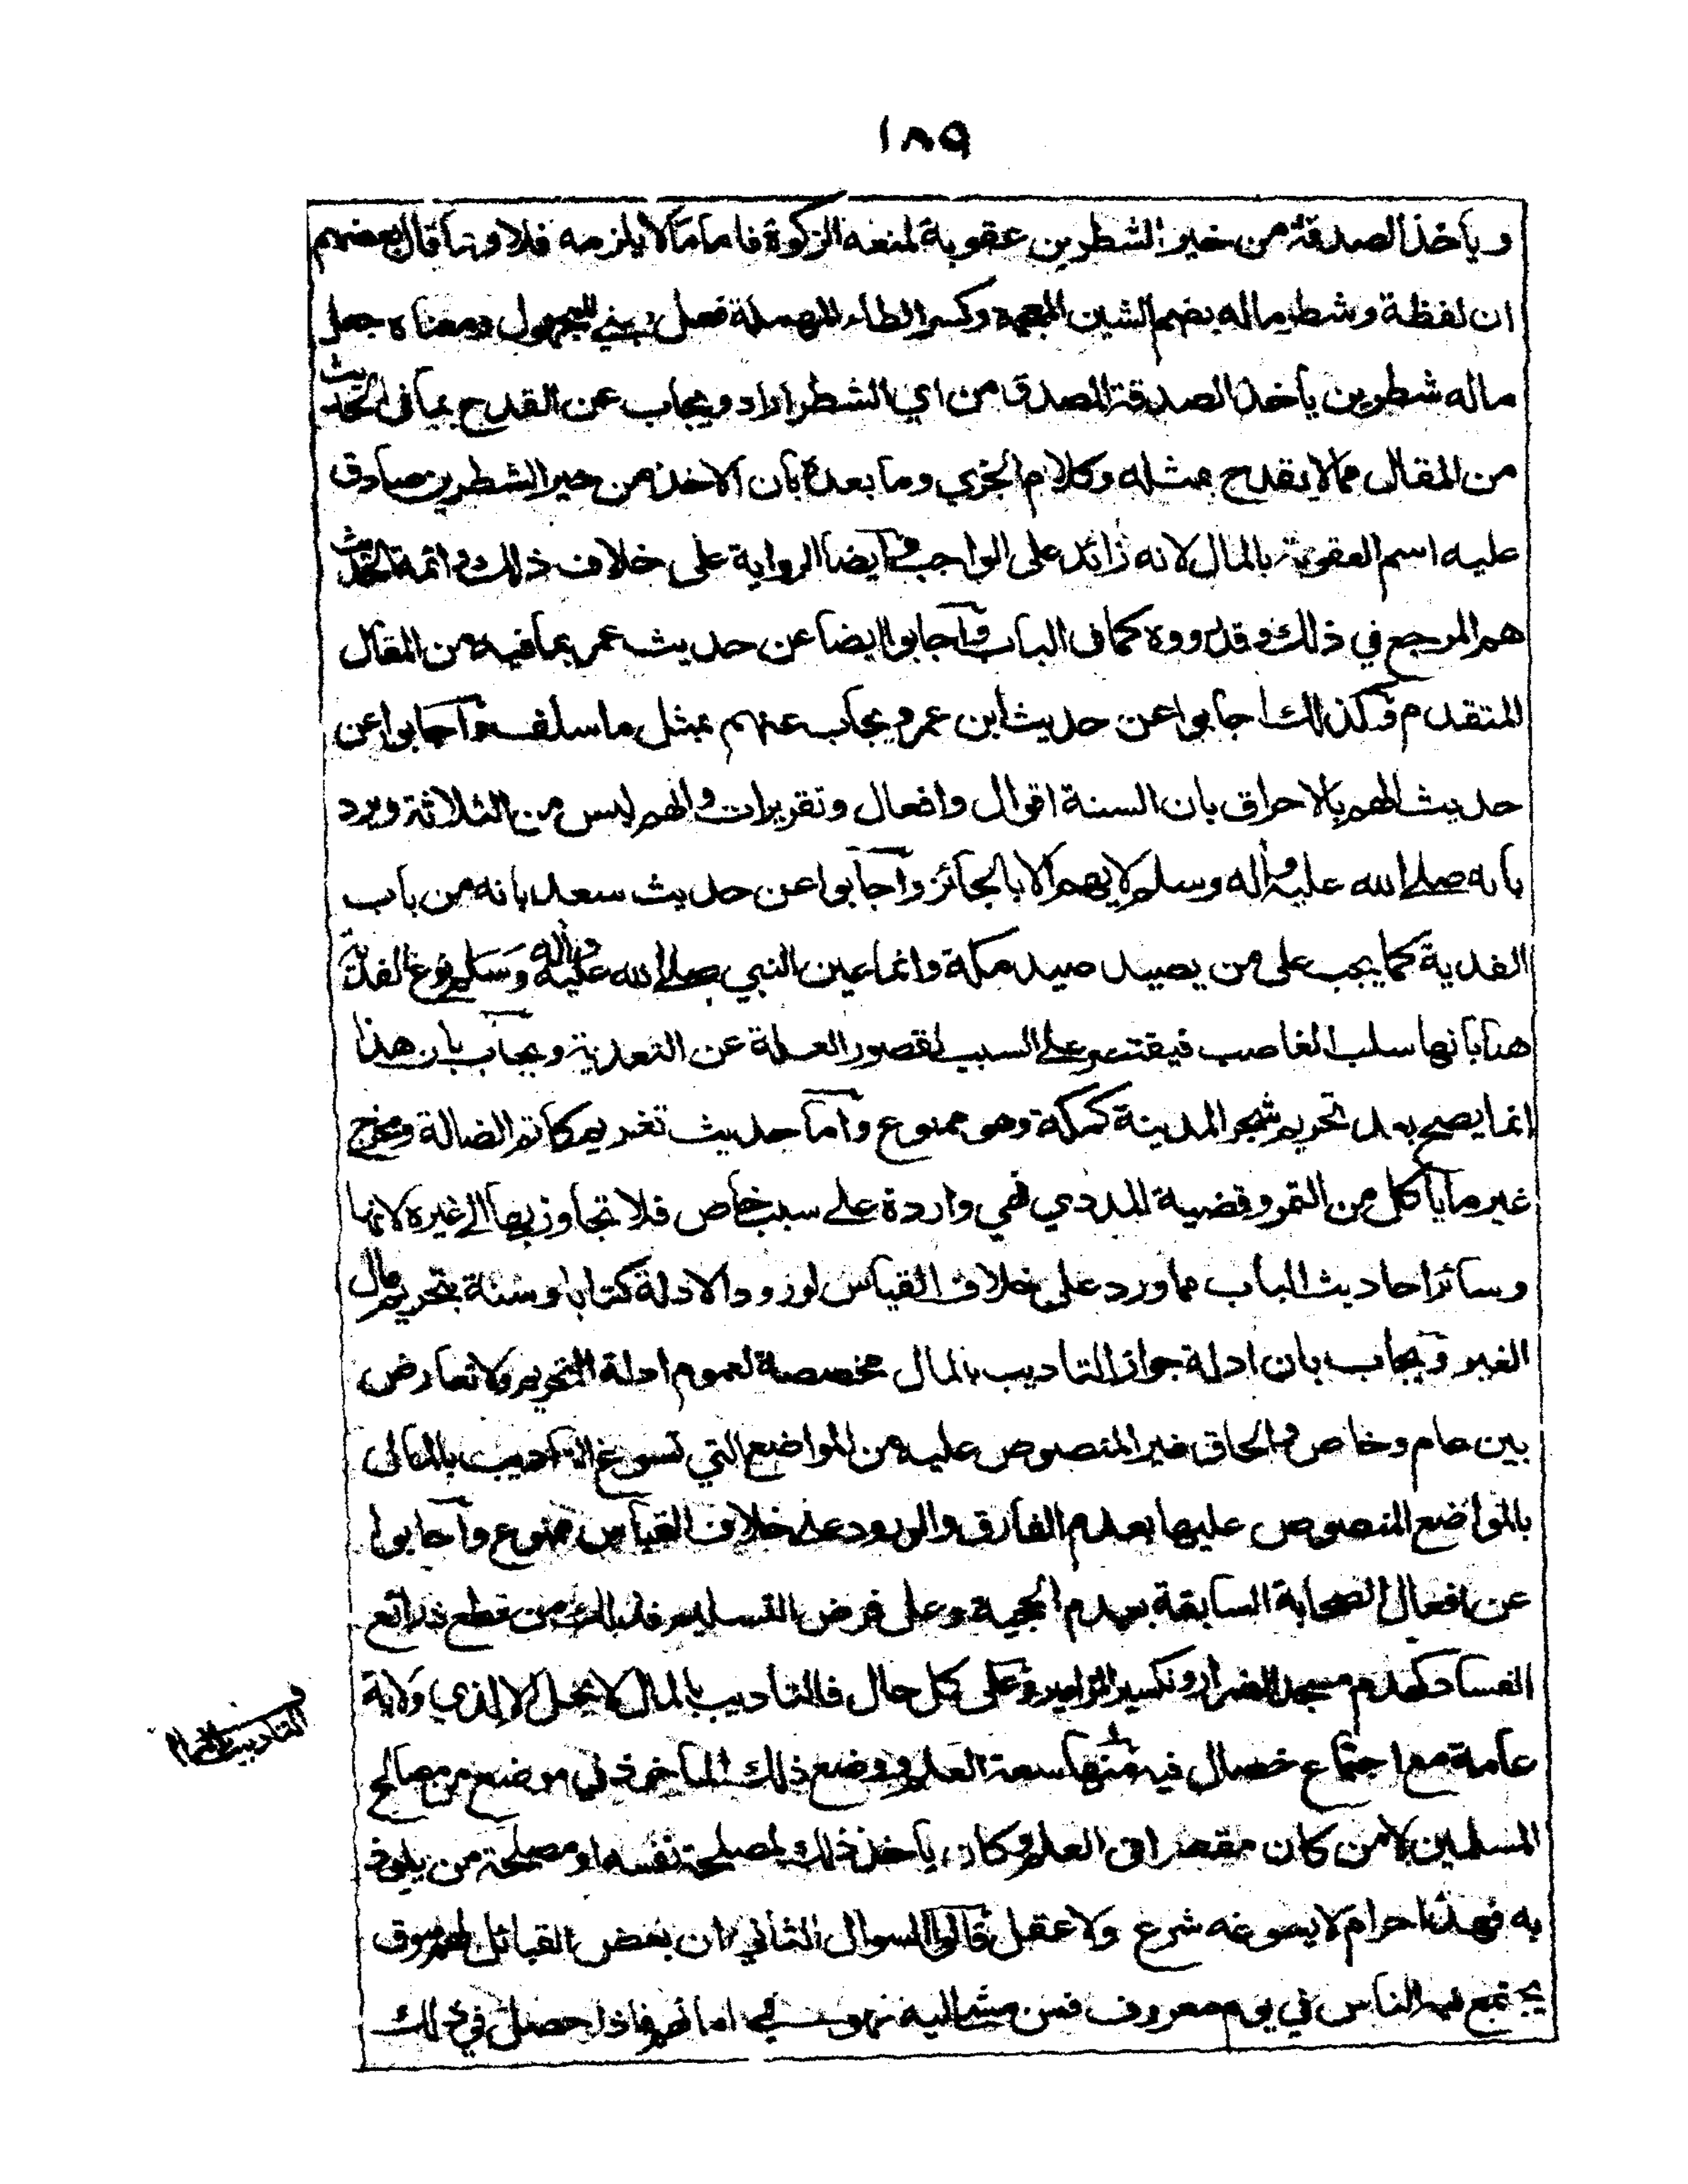 ١٨٩
ويأخذ الصدقة من خير الشطرين عقوبة لمنعه الزكوة فاما مالا يلزمه فلا وبما قال بعضهم
ان لفظة وشطر ماله بضم الشين المعجمة وكسر الطاء المهملة فعل مبني للمجهول ومعناه جعل
ماله شطرين يأخذ الصدقة المصدق من اي الشطر اراد ويجاب عن القدح بما في الحديث
من المقال مما لا يقدح بمثله وكلام الحربي وما بعده بان الاخذ من خير الشطرين صادق
عليه اسم العقوبة بالمال لانه زائد على الواجب وايضا الرواية على خلاف ذلك وائمة الحديث
هم المرجع في ذلك وقد رووه كما في الباب واجابوا ايضا عن حديث عمر بما فيه من المقال
المتقدم وكذلك اجابوا عن حديث ابن عمرو ويجاب عنهم بمثل ما سلف واجابوا عن
حديث الهم بالاحراق بان السنة اقوال وافعال وتقريرات والهم ليس من الثلاثة ويرد
بانه صلى الله عليه واله وسلم لا يهم الا بالجائز واجابوا عن حديث سعد بانه من باب
الفدية كما يجب على من يصيد صيد مكة وانما عين النبي صلى الله عليه واله وسلم نوع الفدية
هنا بانها سلب الغاصب فيقتصر على السبب لقصور العلة عن التعدية ويجاب بان هذا
انما يصح بعد تحريم شجر المدينة كمكة وهو ممنوع واما حديث تغريم كاتم الضالة ومخرج
غير ما يأكل من التمر وقضية المددي فهي واردة على سبب خاص فلا تجاوز بها الى غيره لانها
وسائر احاديث الباب مما ورد على خلاف القياس لورود الادلة كتابا وسنة بتحريم مال
الغير ويجاب بان ادلة جواز التاديب بالمال مخصصة لعموم ادلة التحريم ولا تعارض
بين عام وخاص والحاق غير المنصوص عليه من المواضع التي تسوغ التاديب بالمال
بالمواضع المنصوص عليها بعدم الفارق والورود على خلاف القياس ممنوع واجابوا
عن افعال الصحابة السابقة بعدم الحجية وعلى فرض التسليم فذلك من قطع ذرائع
الفساد كهدم مسجد الضرار وتكسير المزامير وعلى كل حال فالتاديب بالمال لا يحل الا لذي ولاية
عامة مع اجتماع خصال فيه منها سعة العلم ووضع ذلك المأخوذ في موضع من مصالح
المسلمين لا من كان مقصرا في العلم وكان يأخذ ذلك لمصلحة نفسه او مصلحة من يلوذ
به فهذا حرام لا يسوغه شرع ولا عقل قالوا السوال الثاني ان بعض القبائل لهم سوق
يجتمع فيه الناس في يوم معروف فمن مشى اليه فهو في امانهم فاذا حصل في ذلك
التاديب بالمال